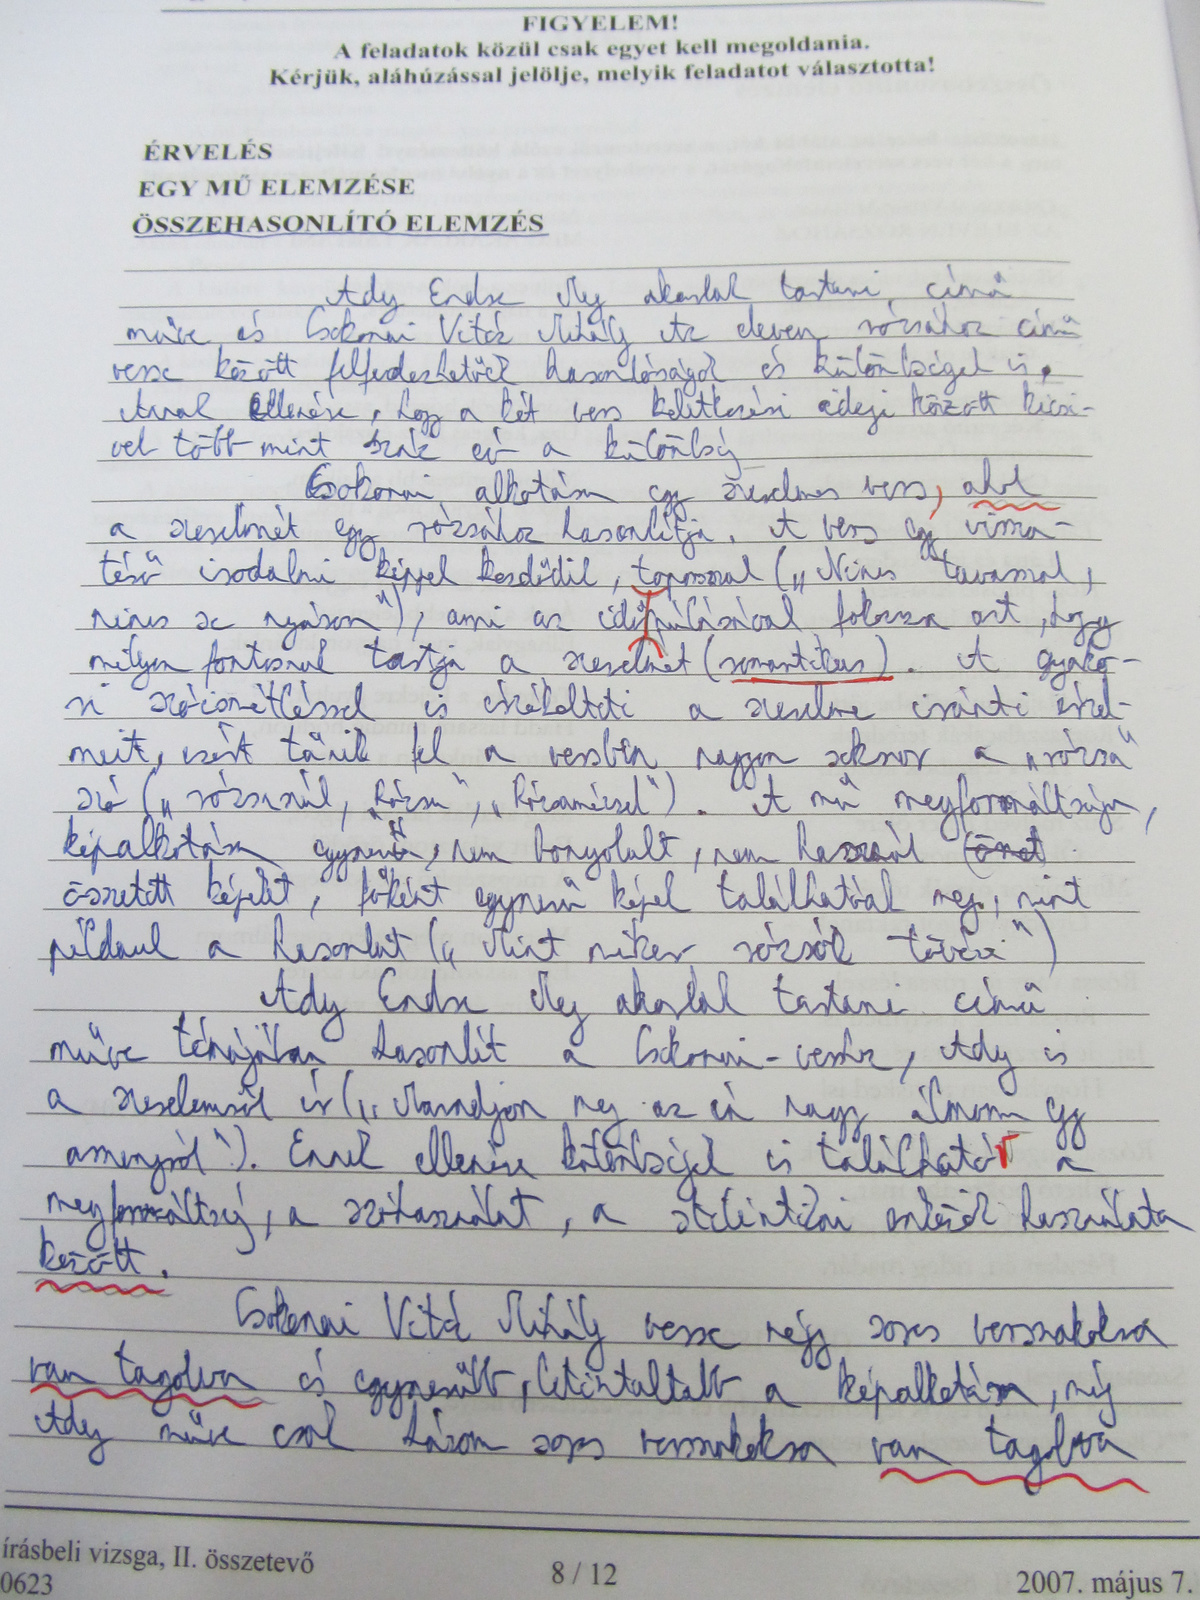 FIGYELEM!
A feladatok közül csak egyet kell megoldania.
Kérjük, aláhúzással jelölje, melyik feladatot választotta!
ÉRVELÉS
EGY MŰ ELEMZÉSE
ÖSSZEHASONLÍTÓ ELEMZÉS
Ady Endre Meg akarlak tartani, című
műve és Csokonai Vitéz Mihály Az eleven rózsához című
verse között felfedezhetőek hasonlóságok és különbségek is.
Annak ellenére, hogy a két vers keletkezési ideje között kicsi-
vel több mint száz év a különbség
Csokonai alkotása egy szerelmes vers, ahol
a szerelmét egy rózsához hasonlítja. A vers egy vissza-
térő irodalmi képpel kezdődik, toposszal („Nincs tavasszal,
nincs se nyáron"), ami az időpúlásával fokozza azt, hogy
milyen fontosnak tartja a szerelmét (romantikus). A gyako-
ri szóismétléssel is érzékelteti a szerelme iránti érzel-
meit, ezért tűnik fel a versben nagyon sokszor a „rózsa"
szó („rózsának, „Rózsa", „Rózsamézzel"). A mű megformáltsága,
képalkotása egynemű, nem bonyolult, nem használ
összetett képeket, főként egynemű képek találhatóak meg, mint
például a hasonlat („Mint mikor rózsák tövére")
Ady Endre Meg akarlak tartani című
műve témájában hasonlít a Csokonai-vershez, Ady is
a szerelemről ír („Maradjon meg az én nagy álmom egy
asszonyról"). Ennek ellenére különbségek is található a
megformáltság, a szóhasználat, a stilisztikai eszközök használata
között.
Csokonai Vitéz Mihály verse négy soros versszakokra
van tagolva és egynemübb, letisztultabb a képalkotása, míg
Ady műve csak három soros versszakokra van tagolva
írásbeli vizsga, II. összetevő
0623
8 / 12
2007. május 7.